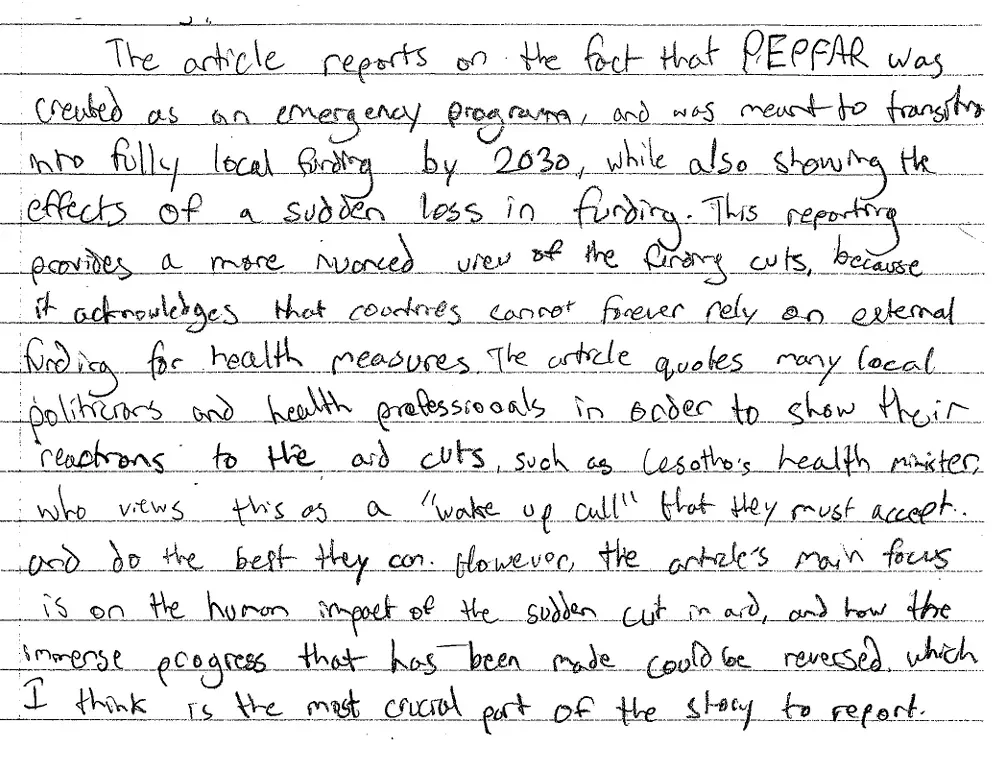 The article reports on the fact that PEPFAR was
created as an emergency program, and was meant to transition
into fully local funding by 2030, while also showing the
effects of a sudden loss in funding. This reporting
provides a more nuanced view of the funding cuts, because
it acknowledges that countries cannot forever rely on external
funding for health measures. The article quotes many local
politicians and health professionals in order to show their
reactions to the aid cuts, such as Lesotho's health minister,
who views this as a "wake up call" that they must accept.
and do the best they can. However, the article's main focus
is on the human impact of the sudden cut in aid, and how the
immense progress that has been made could be reversed, which
I think is the most crucial part of the story to report.